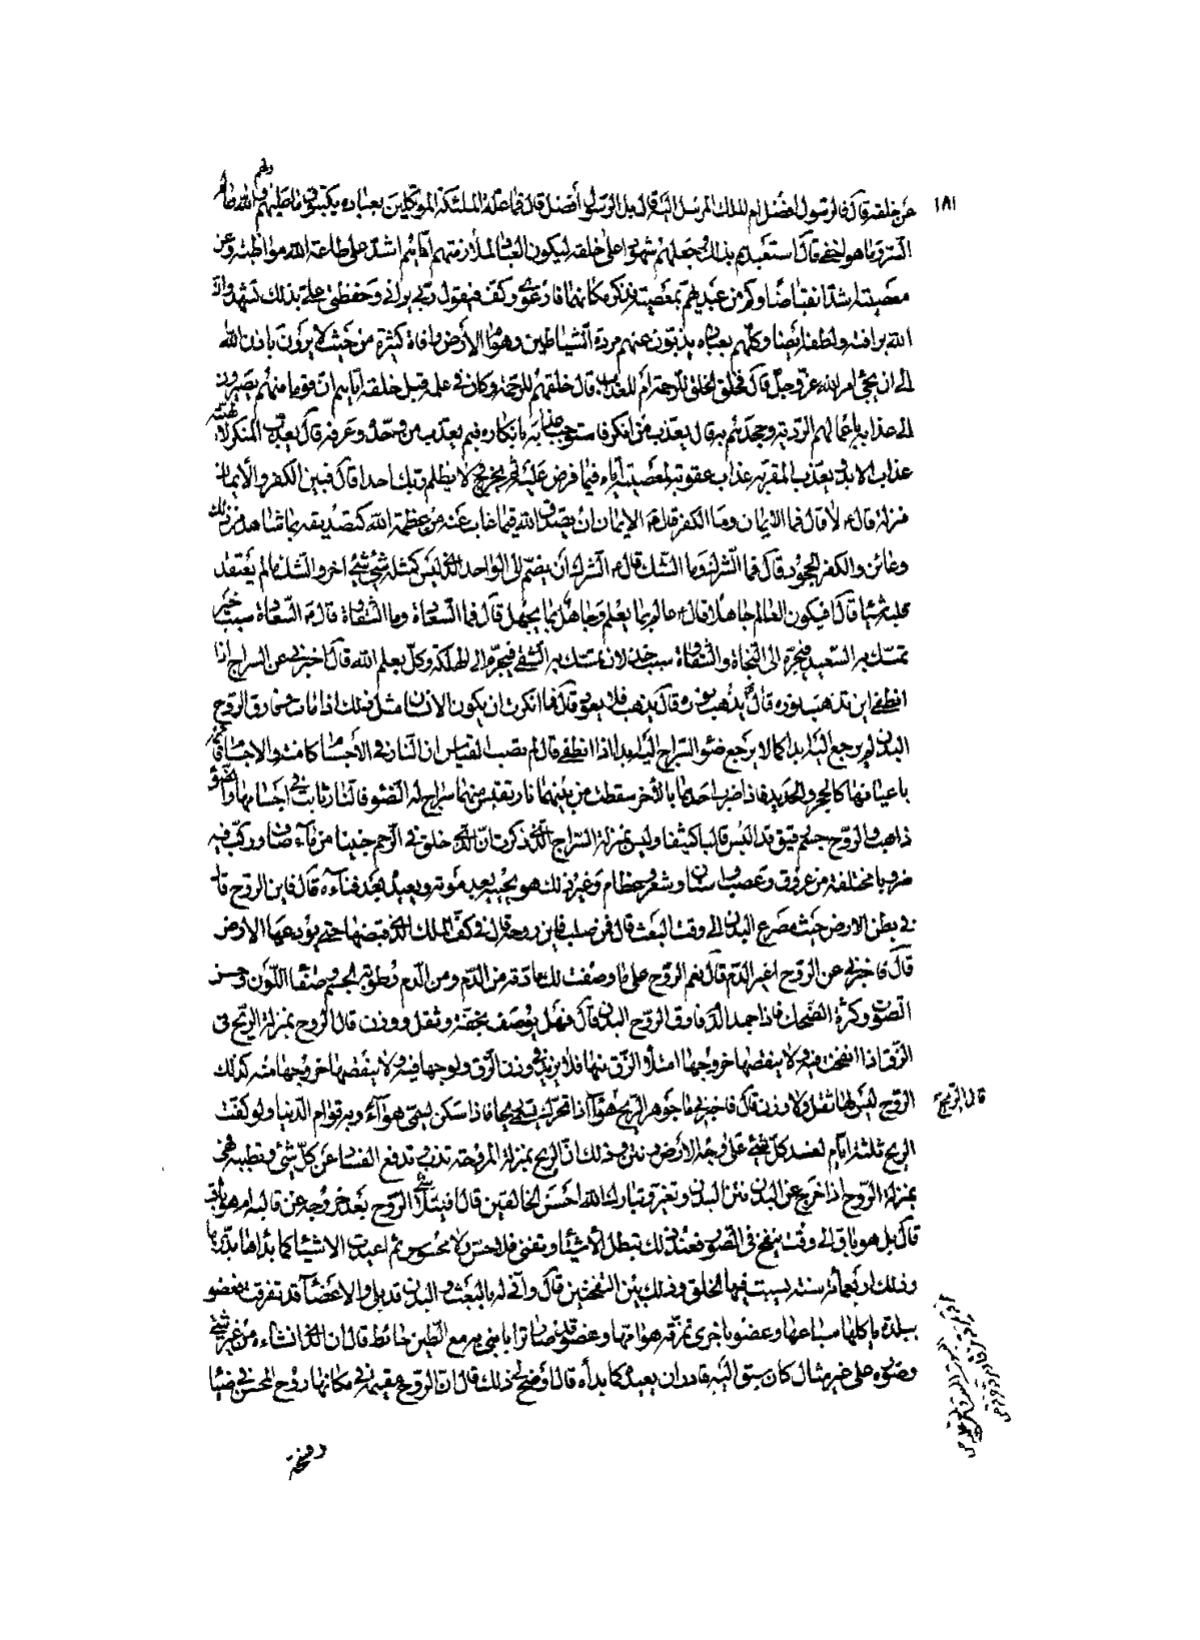 ١٨١
عن خلقه قال فالرسول افضل ام الملك المرسل اليه قال بل الرسول افضل قال فما علة الملئكة الموكلين بعباده يكتبون ما عليهم ولهم والله عالم
السر وما هو اخفى قال استعبدهم بذلك وجعلهم شهودا على خلقه ليكون العباد لملازمتهم اياهم اشد على طاعة الله مواظبة وعن
معصيته اشد انقباضا وكم من عبد يهم بمعصيته فذكر مكانهما فارعوى وكف فيقول ربي يراني وحفظتي علي بذلك تشهد وان
الله برافته ولطفه ايضا وكلهم بعباده يذبون عنهم مردة الشياطين وهوام الارض وافات كثيرة من حيث لا يرون باذن الله
الى ان يجئ امر الله عز وجل قال فخلق الخلق للرحمة ام للعذاب قال خلقهم للرحمة وكان في علمه قبل خلقه اياهم ان قوما منهم يصيرون
الى عذابه باعمالهم الردية وجحدهم به قال يعذب من انكر فاستوجب عذابه بانكاره فبم يعذب من وحده وعرفه قال يعذب المنكر لالهيته
عذاب الابد ويعذب المقر به عذاب عقوبة لمعصيته اياه فيما فرض عليه ثم يخرج ولا يظلم ربك احدا قال فبين الكفر والايمان
منزلة قال لا قال فما الايمان وما الكفر قال الايمان ان يصدق الله فيما غاب عنه من عظمة الله كتصديقه بما شاهد من ذلك
وعاين والكفر الجحود قال فما الشرك وما الشك قال الشرك ان يضم الى الواحد الذي ليس كمثله شئ شئ اخر والشك ما لم يعتقد
قلبه شيئا قال افيكون العالم جاهلا قال عالم بما يعلم وجاهل بما يجهل قال فما السعادة وما الشقاوة قال السعادة سبب خير
تمسك به السعيد فيجره الى النجاة والشقاوة سبب خذلان تمسك به الشقي فيجره الى الهلكة وكل بعلم الله قال اخبرني عن السراج اذا
انطفى اين تذهب نوره قال يذهب نوره قال يذهب فلا يعود قال فما انكرت ان يكون الانسان مثل ذلك اذا مات وفارق الروح
البدن لم يرجع اليه ابدا كما لا يرجع ضوء السراج اليه ابدا اذا انطفى قال لم تصب القياس ان النار في الاجسام كامنة والاجسام قائمة
باعيانها كالحجر والحديد فاذا ضرب احدهما بالاخر سقطت من بينهما نار تقتبس منهما سراج له الضوء فالنار ثابت في اجسامها والضوء
ذاهب والروح جسم رقيق قد البس قالبا كثيفا وليس بمنزلة السراج الذي ذكرت ان الذي خلق في الرحم جنينا من ماء صاف وركب فيه
ضروبا مختلفة من عروق وعصب واسنان وشعر وعظام وغير ذلك هو يحييه بعد موته ويعيده بعد فناءه قال فاين الروح قال
في بطن الارض حيث مصرع البدن الى وقت البعث قال فمن صلب فاين روحه قال في كف الملك الذي قبضها حتى يودعها الارض
قال فاخبرني عن الروح اغير الدم قال نعم الروح على ما وصفت لك مادته من الدم ومن الدم رطوبة الجسم وصفاء اللون وحسن
الصوت وكثرة الضحك فاذا جمد الدم فارق الروح البدن قال فهل يوصف بخفة وثقل ووزن قال الروح بمنزلة الريح في
الزق اذا انفخت فيه لا ينقصها خروجها امتلأ الزق منها فلا يزيد في وزن الزق ولوجها فيه ولا ينقصها خروجها منه كذلك
الروح ليس لها ثقل ولا وزن قال فاخبرني ما جوهر الريح هواء اذا تحرك يسمى ريحا فاذا سكن يسمى هواء وبه قوام الدنيا ولو كفت
قال الريح
الريح ثلثة ايام لفسد كل شئ على وجه الارض ونتن وذلك ان الريح بمنزلة المروحة تذب وتدفع الفساد عن كل شئ وتطيبه فهي
بمنزلة الروح اذا خرج عن البدن نتن البدن وتغير وتبارك الله احسن الخالقين قال افيتلاشى الروح بعد خروجه عن قالبه ام هو باق
قال بل هو باق الى وقت ينفخ في الصور فعند ذلك تبطل الاشياء وتفنى فلا حس ولا محسوس ثم اعيدت الاشياء كما بداها مدبرها
وذلك اربعمائة سنة يسبت فيها الخلق وذلك بين النفختين قال وانى له بالبعث والبدن قد بلى والاعضاء قد تفرقت بعضو
ببلدة ياكلها سباعها وعضو باخرى تمزقه هوامها وعضو قد صار ترابا بني به مع الطين حائط قال ان الذي انشاءه من غير شئ
وصوره على غير مثال كان سبق اليه قادر ان يعيده كما بداه قال اوضح لي ذلك قال ان الروح مقيمة في مكانها روح المحسن في ضياء
وفسحة